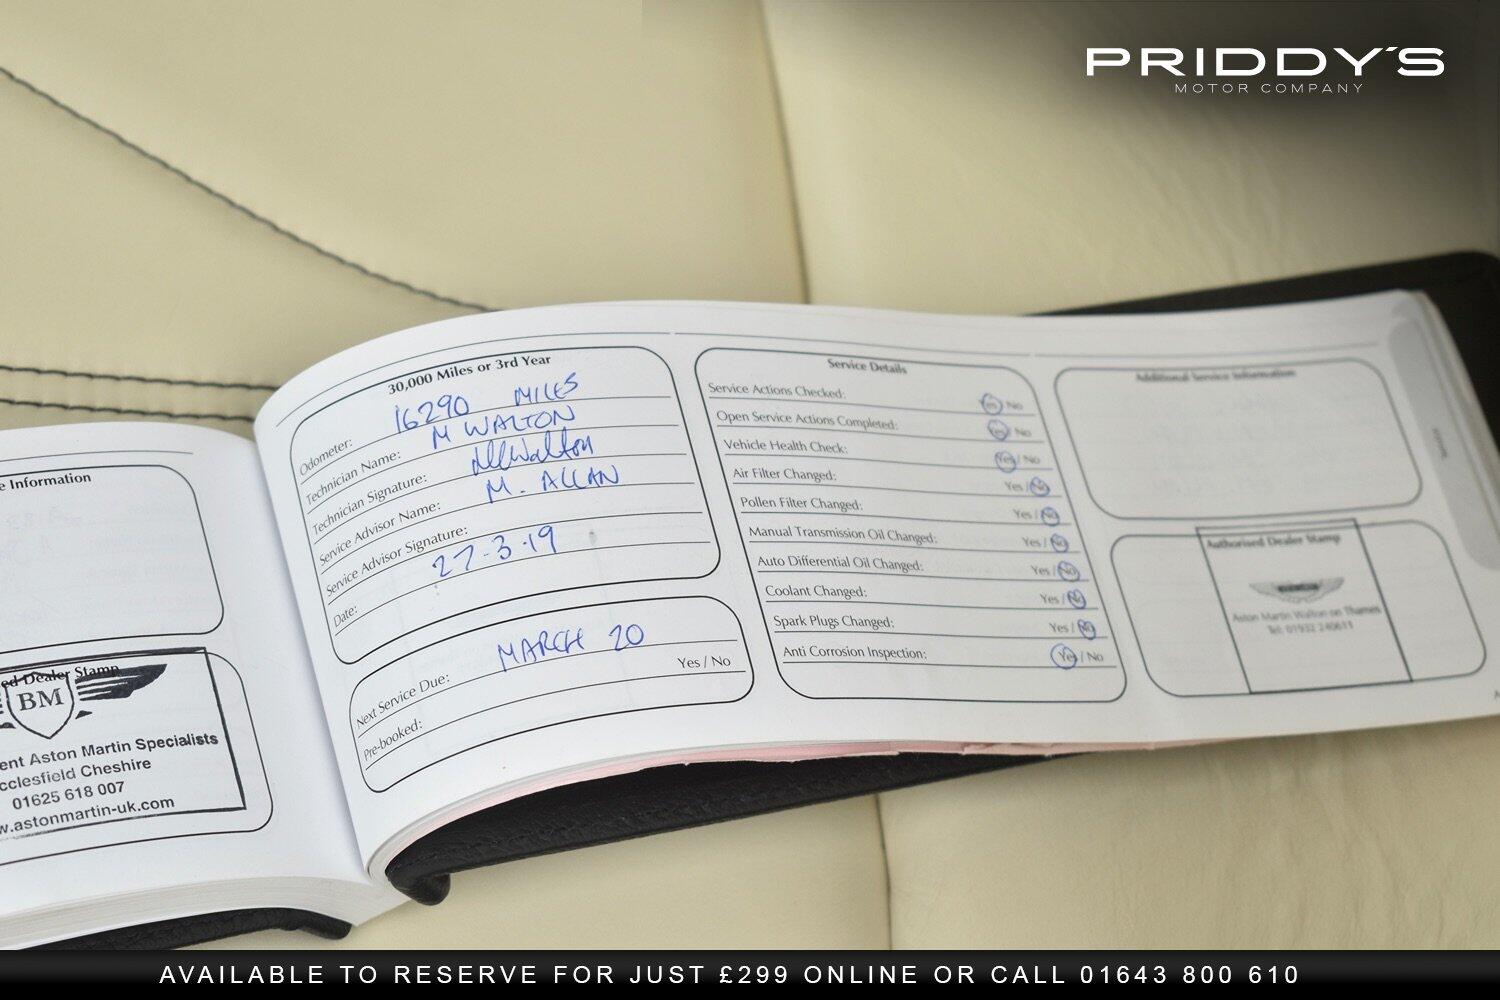 PRIDDY'S
MOTOR COMPANY
e Information
ed Dealer Stamp
BM
ent Aston Martin Specialists
cclesfield Cheshire
01625 618 007
w.astonmartin-uk.com
30,000 Miles or 3rd Year
Odometer: 16290 MILES
Technician Name: M WALTON
Technician Signature: MWalton
Service Advisor Name: M. ALLAN
Service Advisor Signature:
Date: 27-3-19
Next Service Due: MARCH 20
Pre-booked: Yes / No
Service Details
Service Actions Checked: Yes / No
Open Service Actions Completed: Yes / No
Vehicle Health Check: Yes / No
Air Filter Changed: Yes / No
Pollen Filter Changed: Yes / No
Manual Transmission Oil Changed: Yes / No
Auto Differential Oil Changed: Yes / No
Coolant Changed: Yes / No
Spark Plugs Changed: Yes / No
Anti Corrosion Inspection: Yes / No
Additional Service Information
Authorised Dealer Stamp
Aston Martin Walton on Thames
Tel: 01932 240611
AVAILABLE TO RESERVE FOR JUST £299 ONLINE OR CALL 01643 800 610